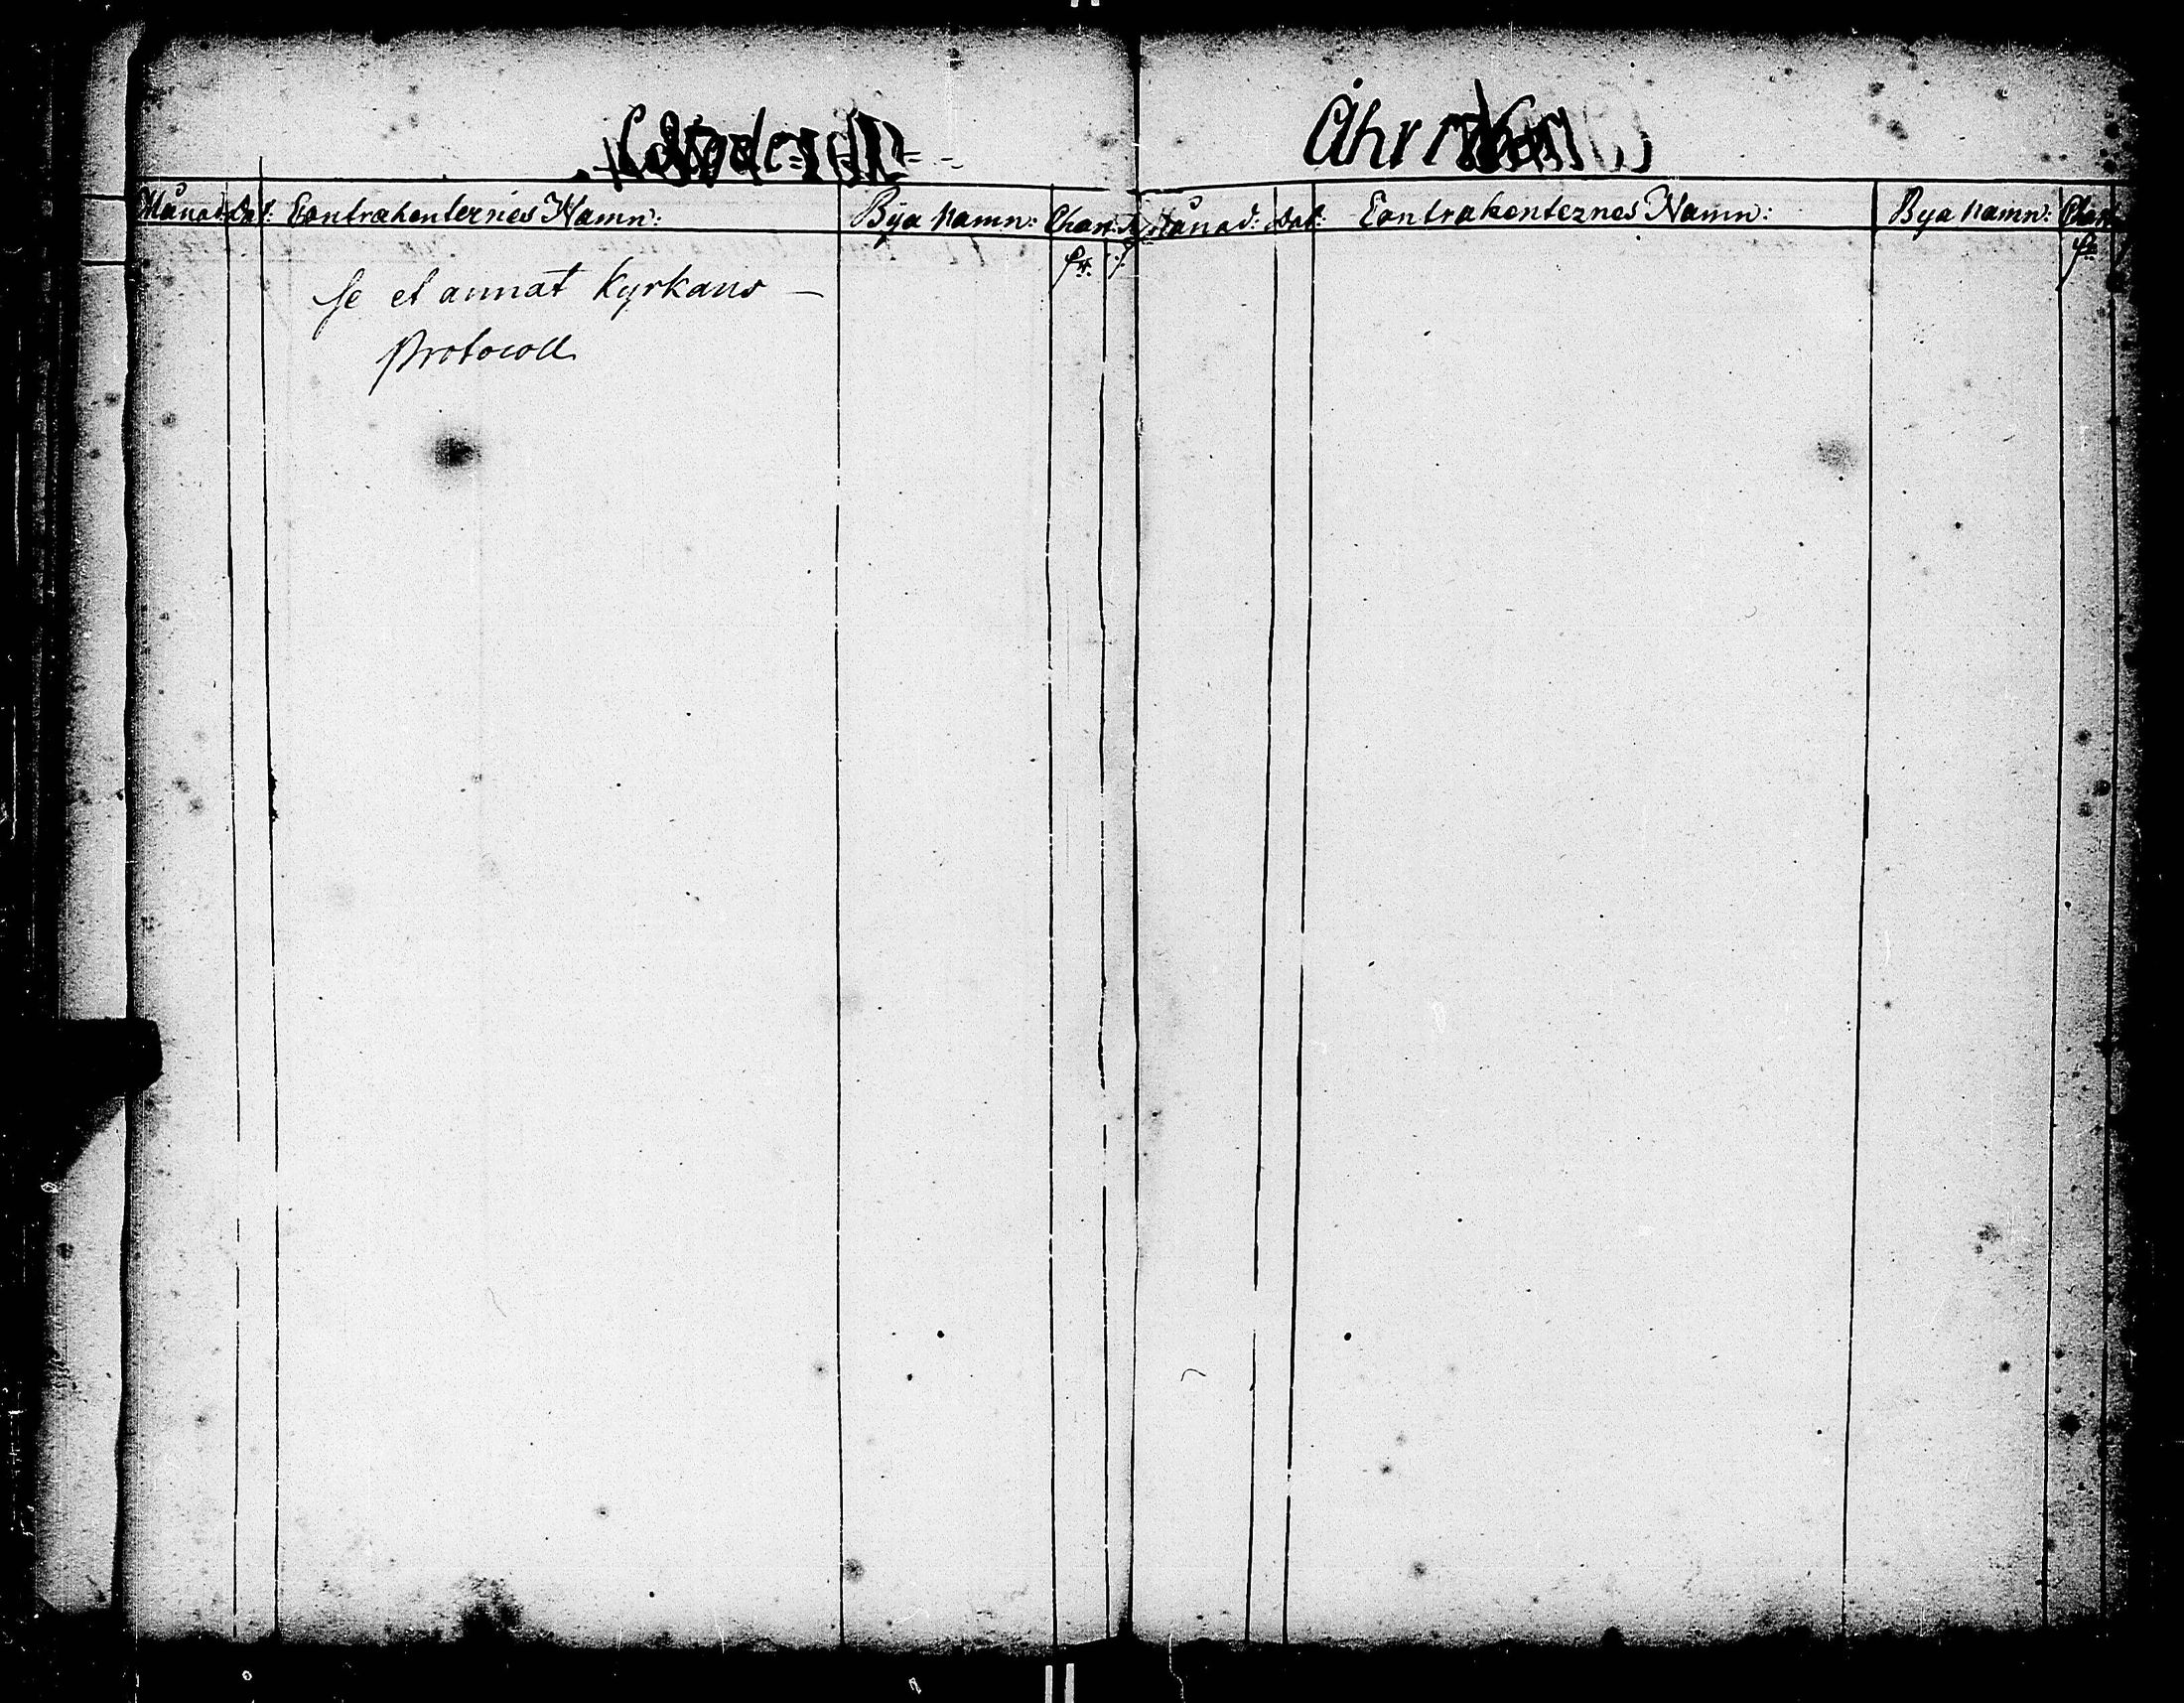 Åhr
Månad: Dat: Contrahenternes Namn: Bÿa Namn: Chart:
Månad: Dat: Contrahenternes Namn: Bya Namn: Chart:
Se et annat Kyrkans —
Protocoll